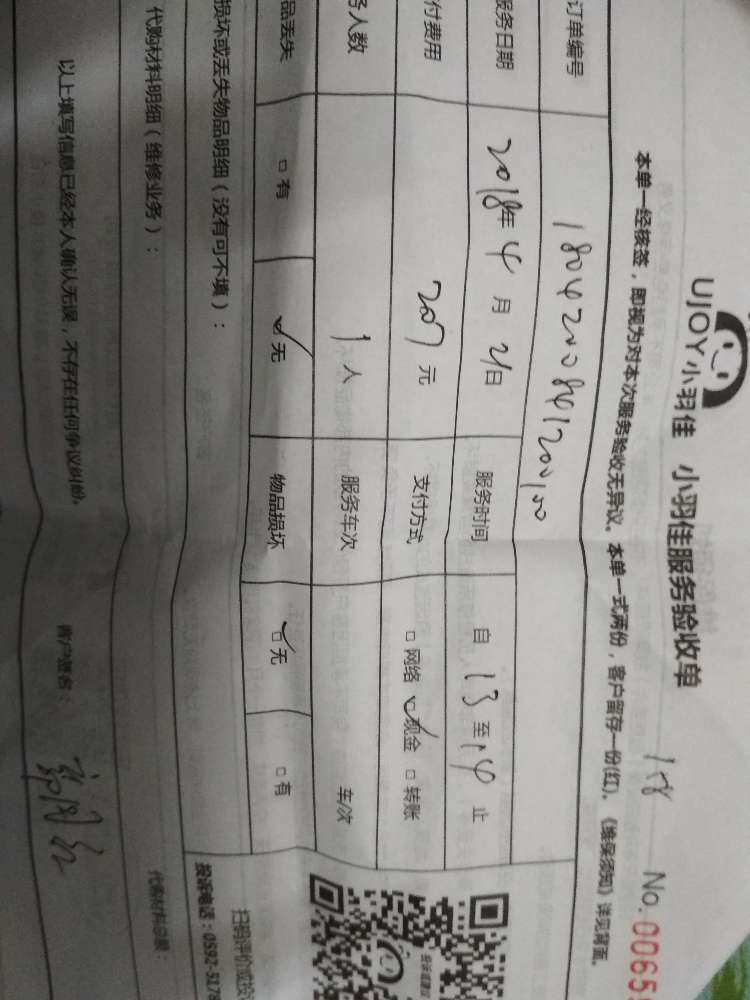 UJOY小羽佳 小羽佳服务验收单
158 No. 0065
本单一经核签，即视为对本次服务验收无异议。本单一式两份，客户留存一份(红)。《维保须知》详见背面。
订单编号
服务日期 2018年4月21日 服务时间 自13至14止
付费用 207元 支付方式 □网络 ☑现金 □转账
务人数 1人 服务车次 车次
品丢失 □有 ☑无 物品损坏 ☑无 □有
损坏或丢失物品明细（没有可不填）：
代购材料明细（维修业务）：
代购材料总额：
以上填写信息已经本人确认无误，不存在任何争议纠纷。 客户签名：
扫码评价或投
投诉电话：0592-5178
投诉或建议